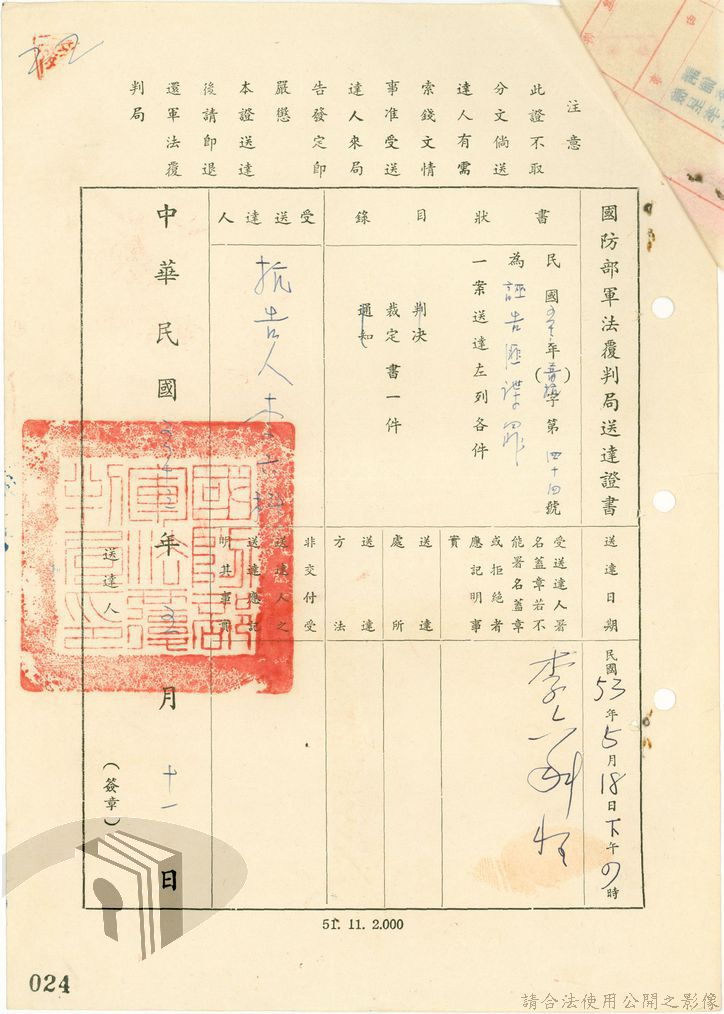 注意
此證不取
分文倘送
達人有需
索錢文情
事准受送
達人來局
告發定即
嚴懲
本證送達
後請即退
還軍法覆
判局
國防部軍法覆判局送達證書
書狀目錄
民國 年( )字第四十四號
為誣告匪諜罪
一案送達左列各件
判決
裁定書一件
通知
受送達人
抗告人李
中華民國 年五月十一日
送達日期
民國53年5月18日下午 時
受送達人署
名蓋章若不
能署名蓋章
或拒絕者
應記明事
實
李
送達處所
送達方法
非交付受
送達人之
送達應記
明其事實
送達人
(簽章)
國防部軍法覆判局印
51. 11. 2.000
024
請合法使用公開之影像